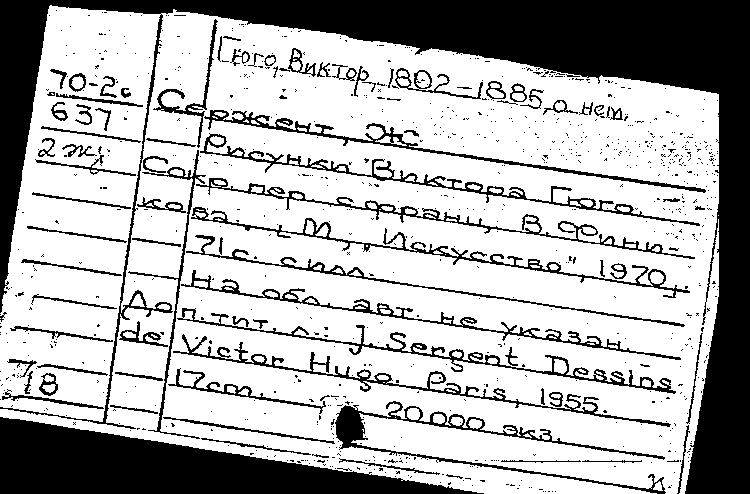 Гюго, Виктор, 1802-1885, о нем.
70-2с
637
2 экз
Сержент, Ж
Рисунки Виктора Гюго.
Сокр. пер. с франц. В. Финикова. [М., „Искусство", 1970]
71 с. с илл.
На обл. авт. не указан.
Доп. тит. л.: J. Sergent. Dessins
de Victor Hugo. Paris, 1955.
17cm. 20000 экз.
18